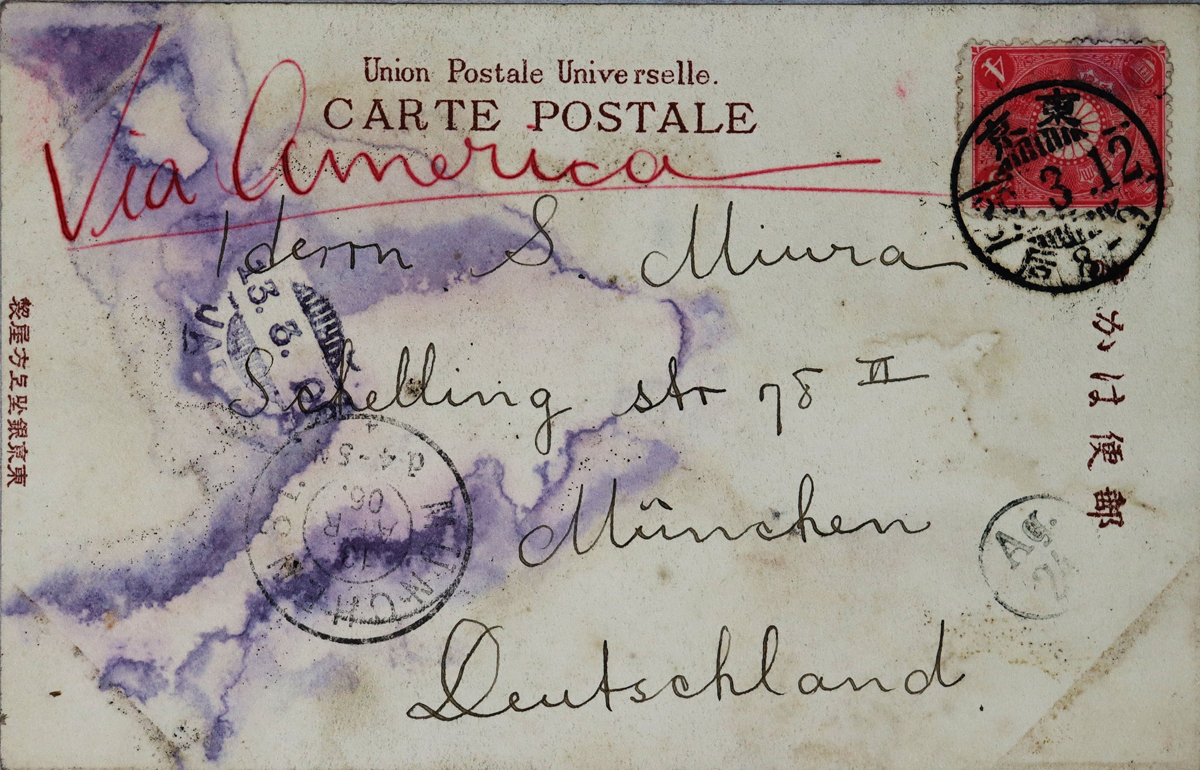 Union Postale Universelle.
CARTE POSTALE
Via America
Herrn S. Miura
Schelling str 78 II
München
Deutschland.
東京
3.12
郵便はかき
東京銀座上方屋製
13.3.
JAPAN
MÜNCHEN
10
APR
06.
4-5
Ag.